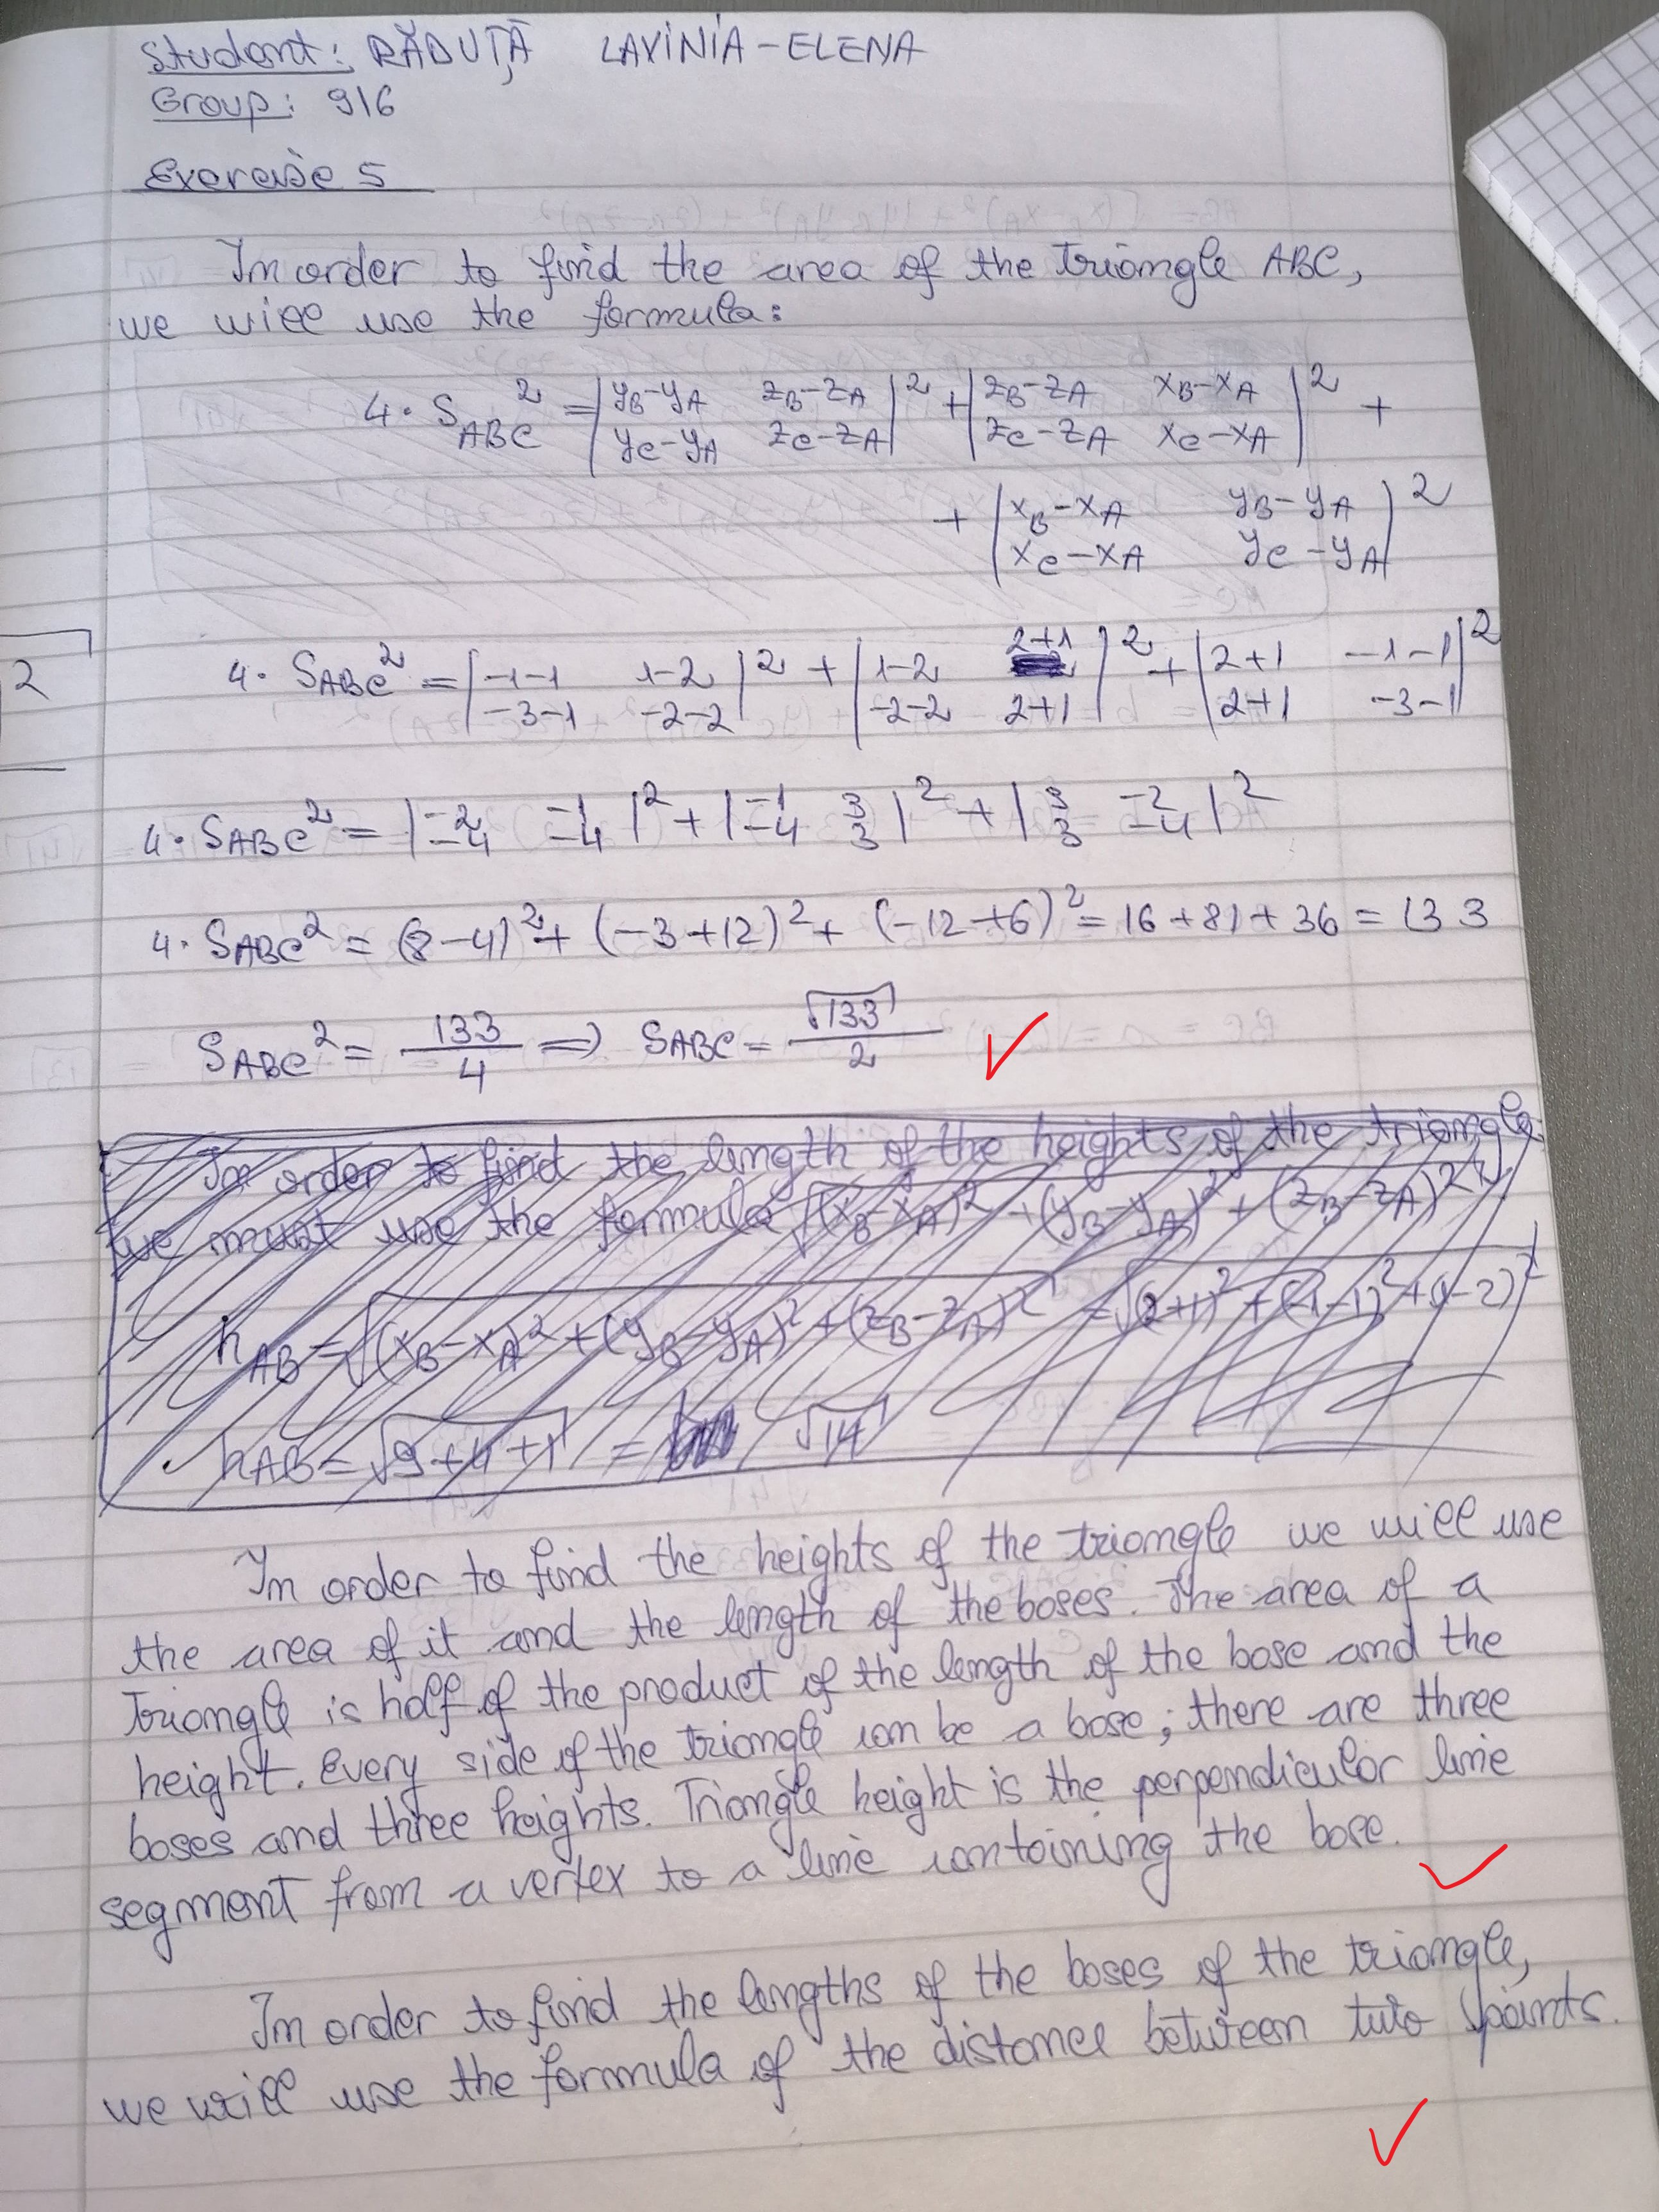 Student: RĂDUȚĂ LAVINIA-ELENA
Group: 916
Exercise 5
In order to find the area of the triangle ABC,
we will use the formula:
4 · S_ABC² = |y_B-y_A z_B-z_A; y_C-y_A z_C-z_A|² + |z_B-z_A x_B-x_A; z_C-z_A x_C-x_A|² +
+ |x_B-x_A y_B-y_A; x_C-x_A y_C-y_A|²
2
4 · S_ABC² = |-1-1 1-2; -3-1 -2-2|² + |1-2 2+1; -2-2 2+1|² + |2+1 -1-1; 2+1 -3-1|²
4 · S_ABC² = |-2 -1; -4 -4|² + |-1 3; -4 3|² + |3 -2; 3 -4|²
4 · S_ABC² = (8-4)² + (-3+12)² + (-12+6)² = 16+81+36 = 133
S_ABC² = 133/4 => S_ABC = √133/2
In order to find the length of the heights of the triangle
we must use the formula √(x_B-x_A)² + (y_B-y_A)² + (z_B-z_A)²
h_AB = √(x_B-x_A)² + (y_B-y_A)² + (z_B-z_A)² = √(2+1)² + (-1-1)² + (1-2)²
h_AB = √9+4+1 = √14
In order to find the heights of the triangle we will use
the area of it and the length of the bases. The area of a
triangle is half of the product of the length of the base and the
height. Every side of the triangle can be a base; there are three
bases and three heights. Triangle height is the perpendicular line
segment from a vertex to a line containing the base.
In order to find the lengths of the bases of the triangle,
we will use the formula of the distance between two points.